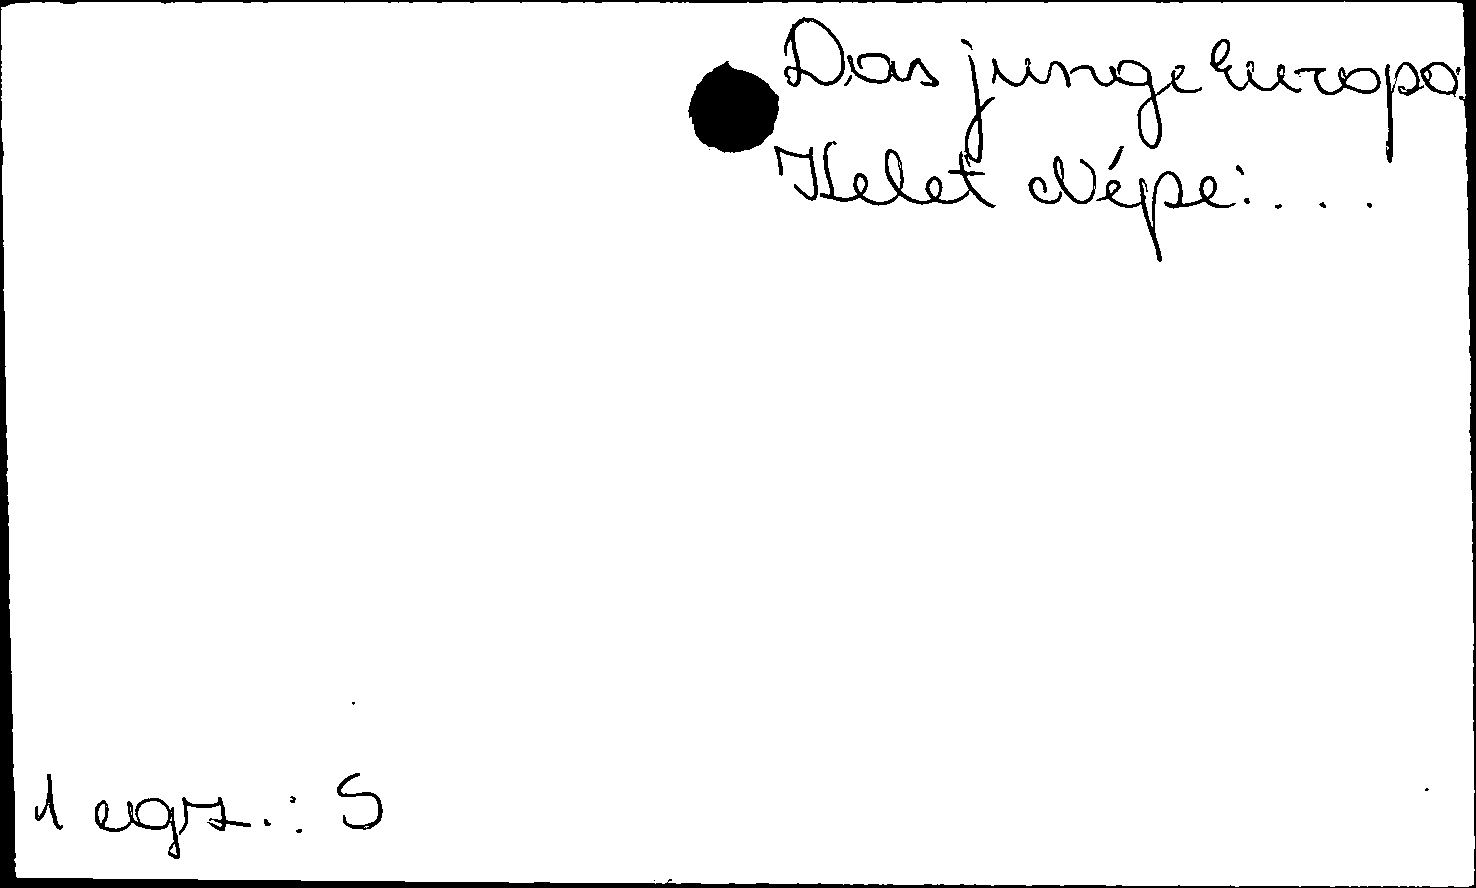 Das junge Europa.
Kelet Népe: . . .
1 egz.: S